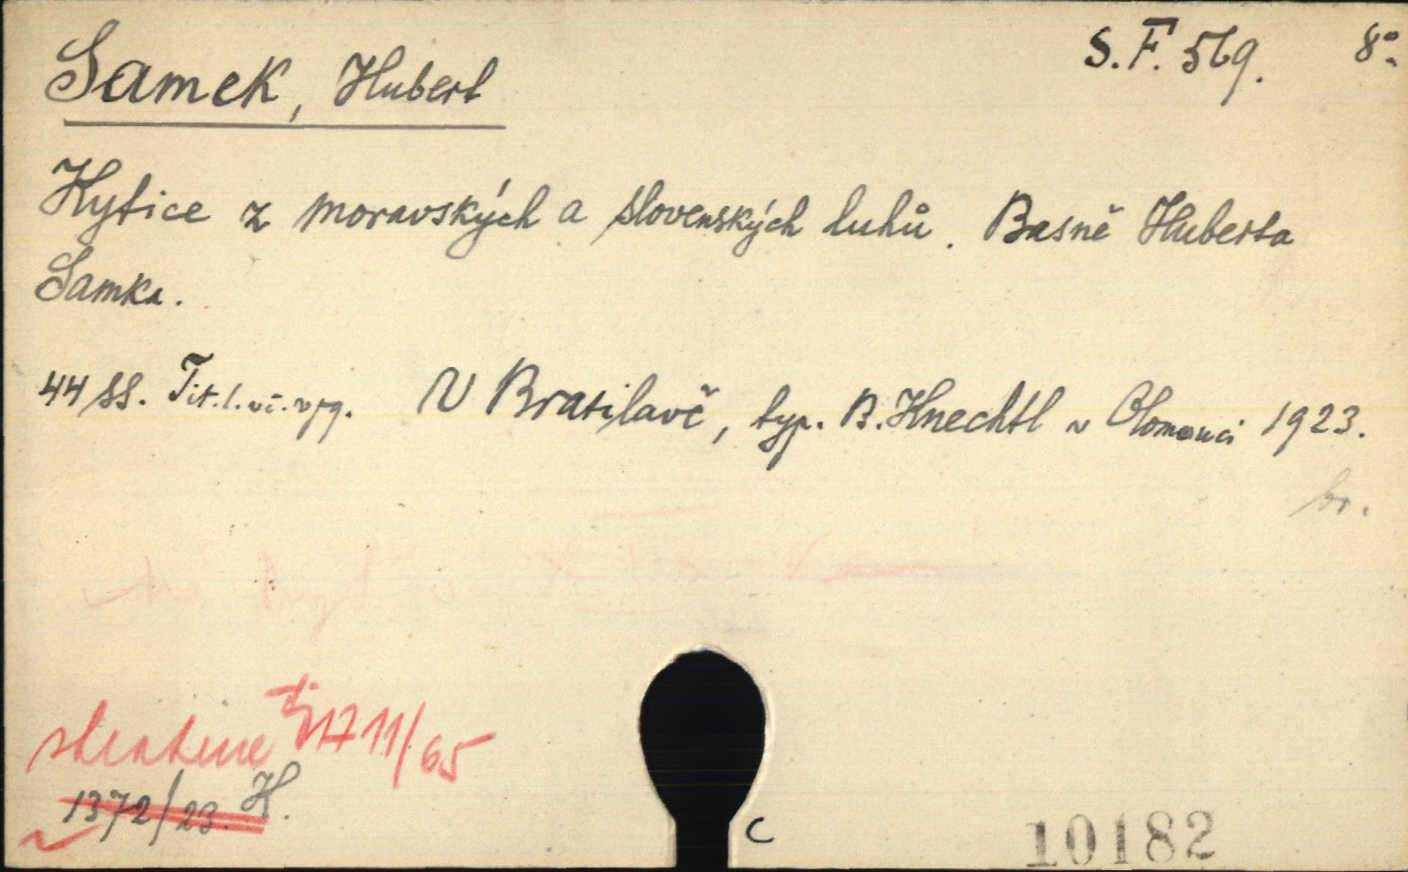 Samek, Hubert S.F. 569. 8°.
Kytice z moravských a slovenských luhů. Basně Huberta
Samka.
44 ss. Tit. l. vč. V Bratilavě, typ. B. Knechtl v Olomouci 1923.
br.
17 11/65
1372/23. K.
C
10182